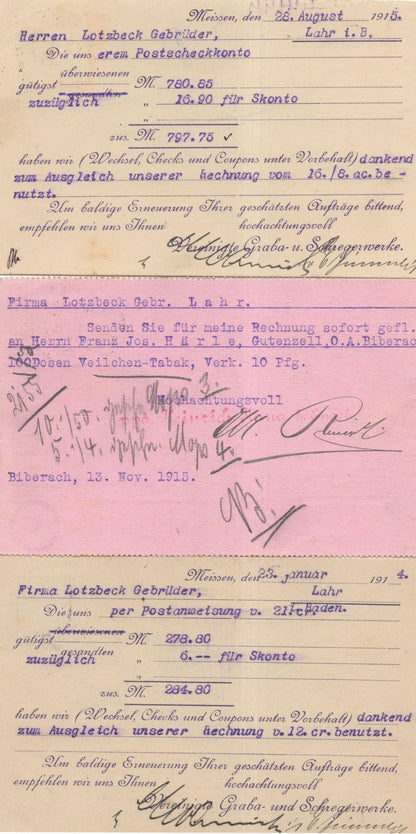 Meissen, den 28. August 1915.
Herren Lotzbeck Gebrüder, Lahr i.B.
Die uns erem Postscheckkonto
überwiesenen
gütigst gesandten M. 780.85
zuzüglich " 16.90 für Skonto
"
zus. M. 797.75 ✓
haben wir (Wechsel, Checks und Coupons unter Vorbehalt) dankend
zum Ausgleich unserer Rechnung vom 16./8. ac. be -
nutzt.
Um baldige Erneuerung Ihrer geschätzten Aufträge bittend,
empfehlen wir uns Ihnen hochachtungsvoll
Vereinigte Graba- u. Schregerwerke.
Firma Lotzbeck Gebr. Lahr.
Senden Sie für meine Rechnung sofort gefl.
an Herrn Franz Jos. Härle, Gutenzell, O.A. Biberac
100 Dosen Veilchen-Tabak, Verk. 10 Pfg.
Hochachtungsvoll
Biberach, 13. Nov. 1915.
Meissen, den 23. Januar 1914.
Firma Lotzbeck Gebrüder, Lahr
i. Baden.
Die uns per Postanweisung v. 21. cr.
überwiesenen
gütigst gesandten M. 278.80
zuzüglich " 6.-- für Skonto
"
zus. M. 284.80
haben wir (Wechsel, Checks und Coupons unter Vorbehalt) dankend
zum Ausgleich unserer Rechnung v. 12. cr. benutzt.
Um baldige Erneuerung Ihrer geschätzten Aufträge bittend,
empfehlen wir uns Ihnen hochachtungsvoll
Vereinigte Graba- und Schregerwerke.